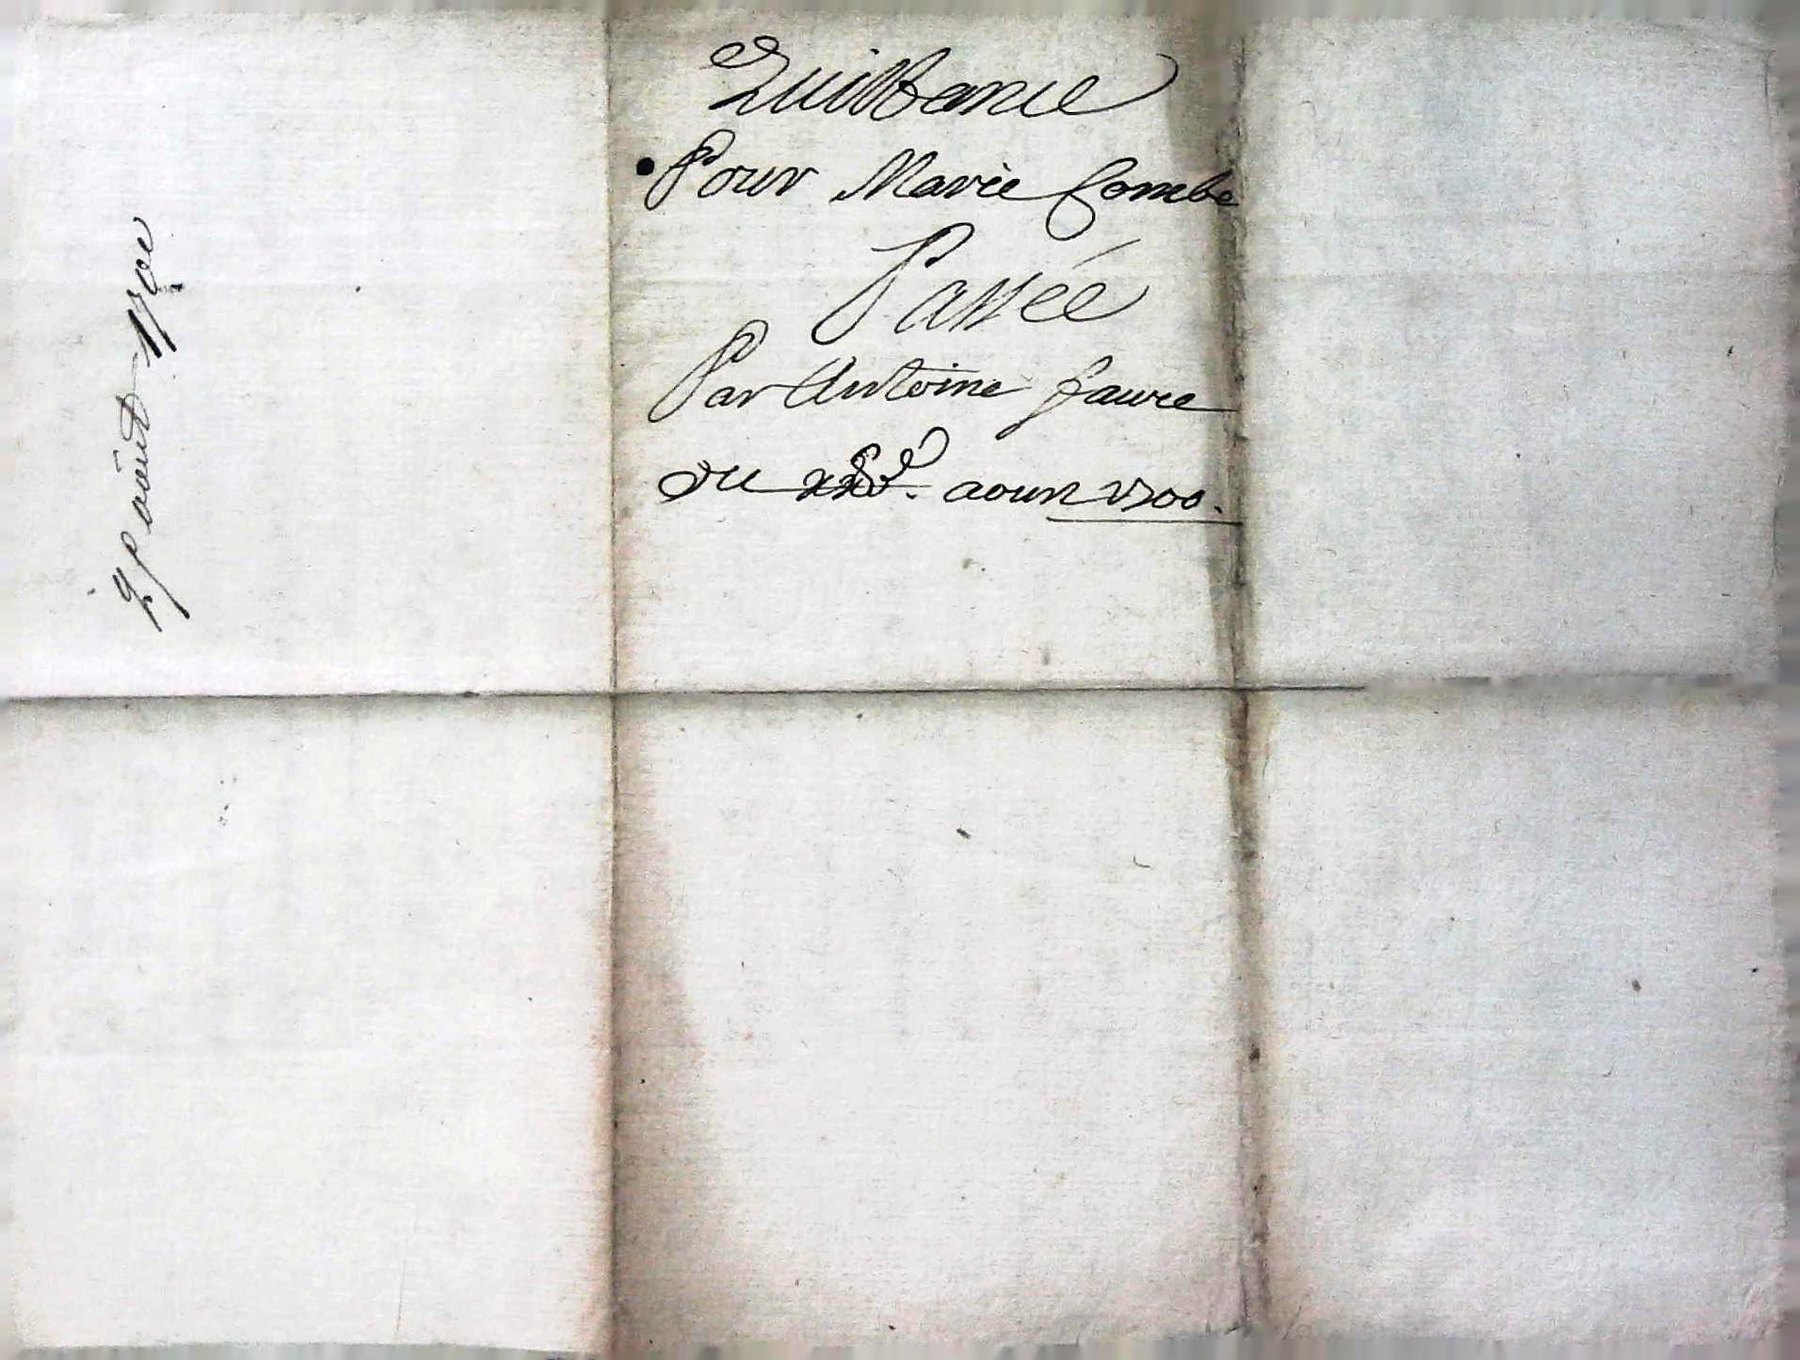 Quittance
Pour Marie Combe
Passée
Par Antoine faure
Du aoust 1700.
aoust 1700